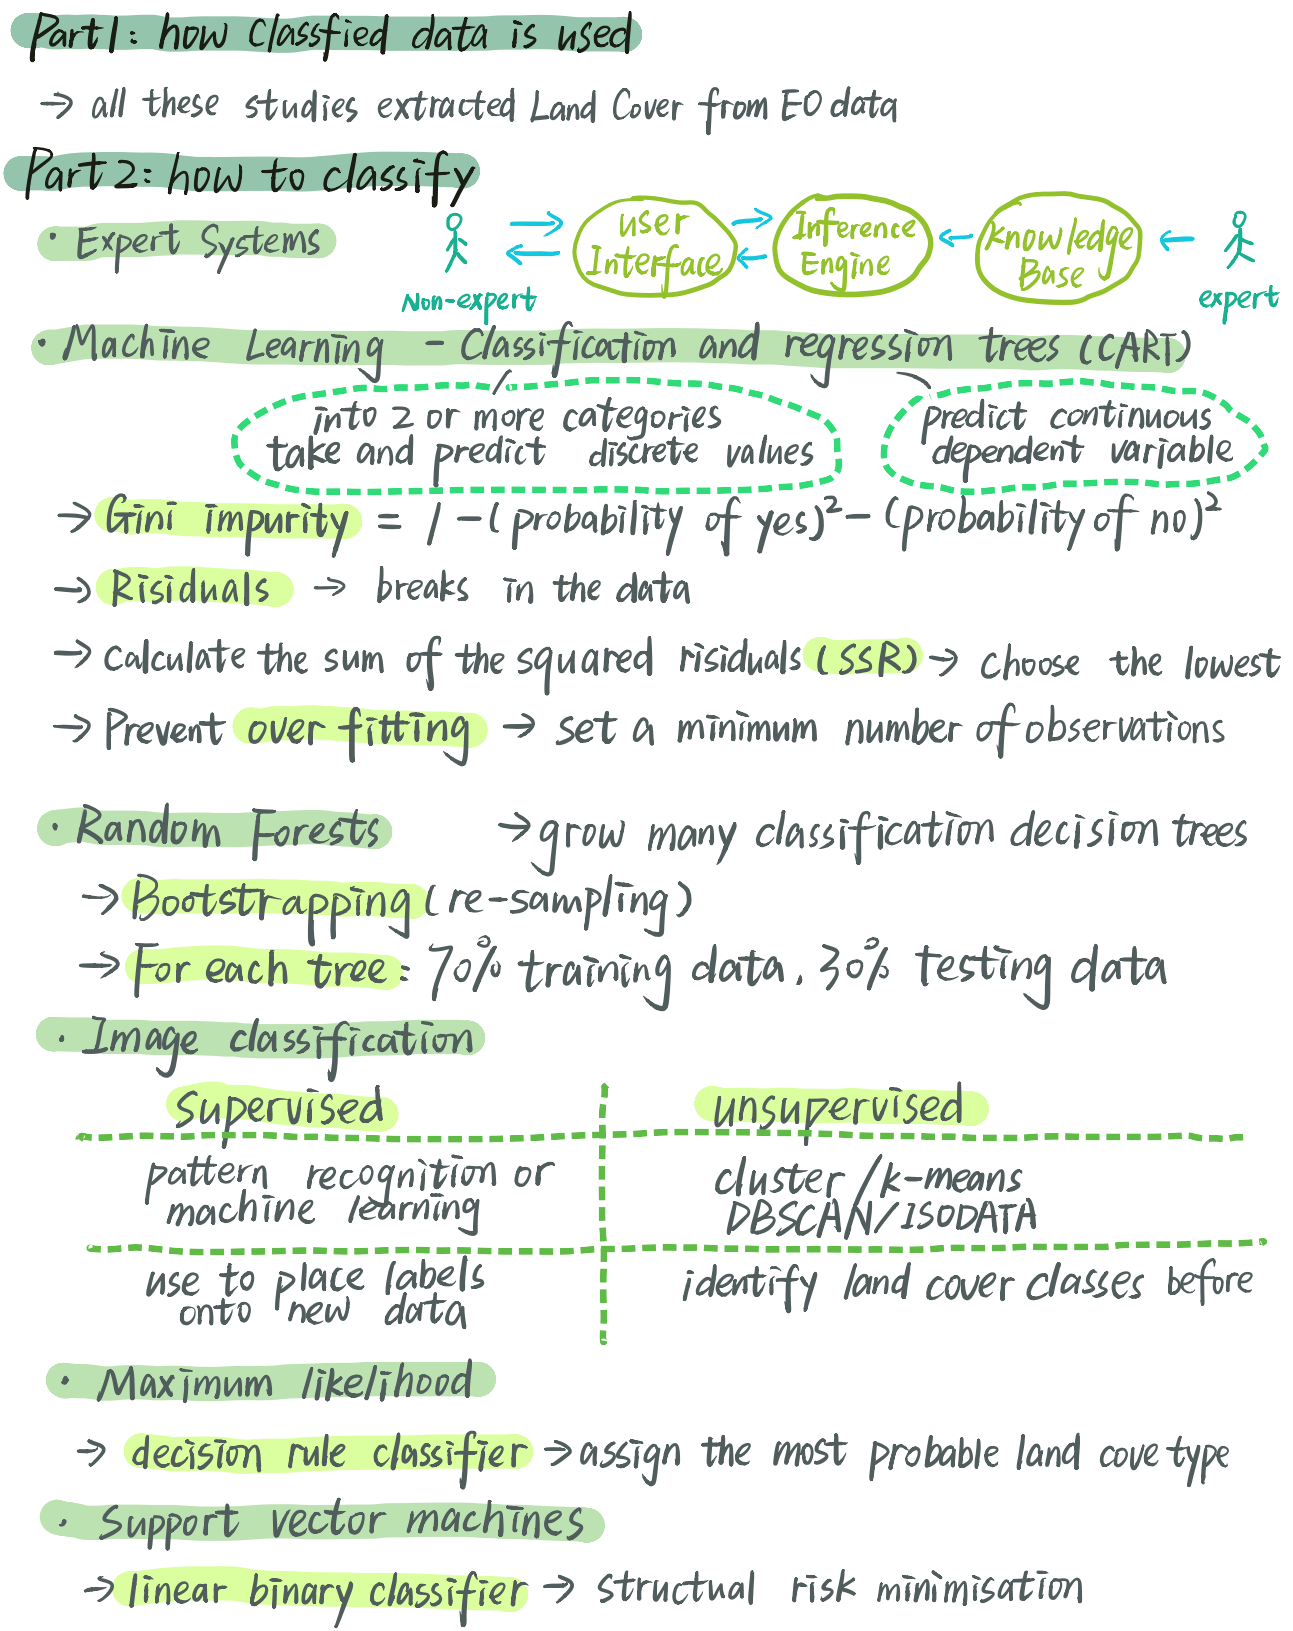 Part1: how Classfied data is used
→ all these studies extracted Land Cover from EO data
Part2: how to classify
· Expert Systems
Non-expert
user Interface
Inference Engine
knowledge Base
expert
· Machine Learning - Classification and regression trees (CART)
into 2 or more categories
take and predict discrete values
predict continuous
dependent variable
→ Gini impurity = 1 - (probability of yes)² - (probability of no)²
→ Risiduals → breaks in the data
→ calculate the sum of the squared risiduals (SSR) → choose the lowest
→ Prevent over fitting → set a minimum number of observations
· Random Forests → grow many classification decision trees
→ Bootstrapping (re-sampling)
→ For each tree: 70% training data. 30% testing data
· Image classification
Supervised
unsupervised
pattern recognition or
machine learning
cluster / k-means
DBSCAN/ISODATA
use to place labels
onto new data
identify land cover classes before
· Maximum likelihood
→ decision rule classifier → assign the most probable land cove type
· Support vector machines
→ linear binary classifier → structual risk minimisation